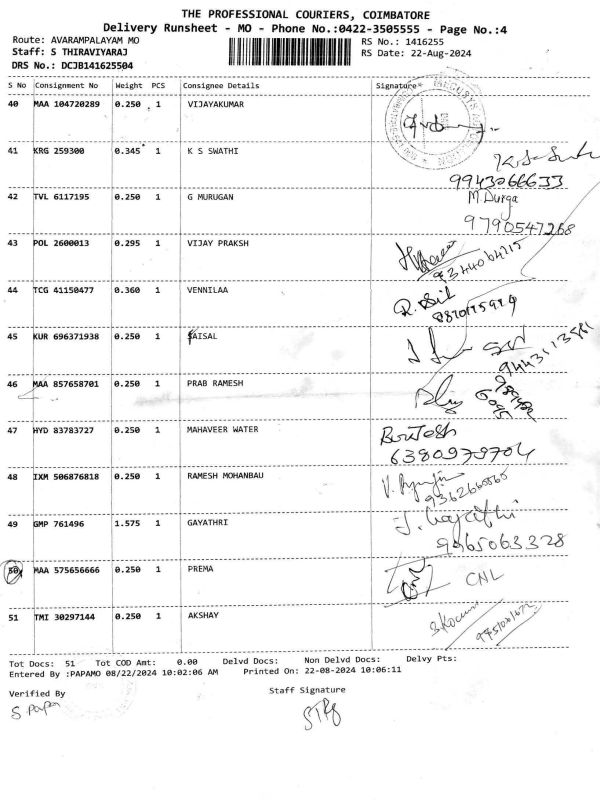 THE PROFESSIONAL COURIERS, COIMBATORE
Delivery Runsheet - MO - Phone No.:0422-3505555 - Page No.:4
Route: AVARAMPALAYAM MO
RS No.: 1416255
Staff: S THIRAVIYARAJ
RS Date: 22-Aug-2024
DRS No.: DCJB141625504
S No Consignment No Weight PCS Consignee Details Signature
40 MAA 104720289 0.250 1 VIJAYAKUMAR
41 KRG 259300 0.345 1 K S SWATHI
9943066633
42 TVL 6117195 0.250 1 G MURUGAN M Durga
9790547268
43 POL 2600013 0.295 1 VIJAY PRAKSH
44 TCG 41150477 0.360 1 VENNILAA
45 KUR 696371938 0.250 1 FAISAL
46 MAA 857658701 0.250 1 PRAB RAMESH
47 HYD 83783727 0.250 1 MAHAVEER WATER
6380979704
48 IXM 506876818 0.250 1 RAMESH MOHANBAU
49 GMP 761496 1.575 1 GAYATHRI J. Gayathri
9965063328
50 MAA 575656666 0.250 1 PREMA CNL
51 TMI 30297144 0.250 1 AKSHAY
Tot Docs: 51 Tot COD Amt: 0.00 Delvd Docs: Non Delvd Docs: Delvy Pts:
Entered By :PAPAMO 08/22/2024 10:02:06 AM Printed On: 22-08-2024 10:06:11
Verified By
Staff Signature
S Papa